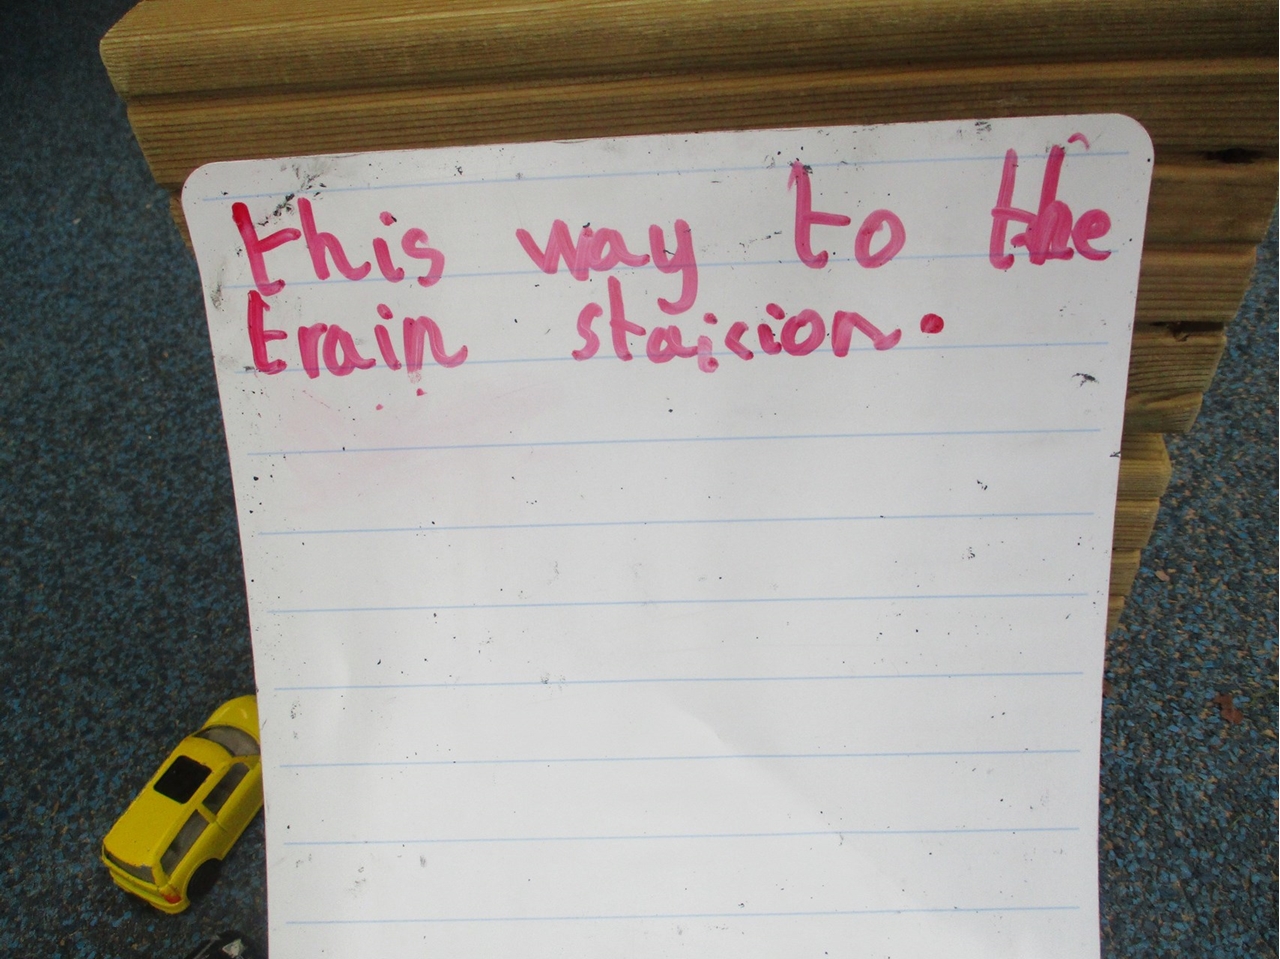 this way to the
train staicion.